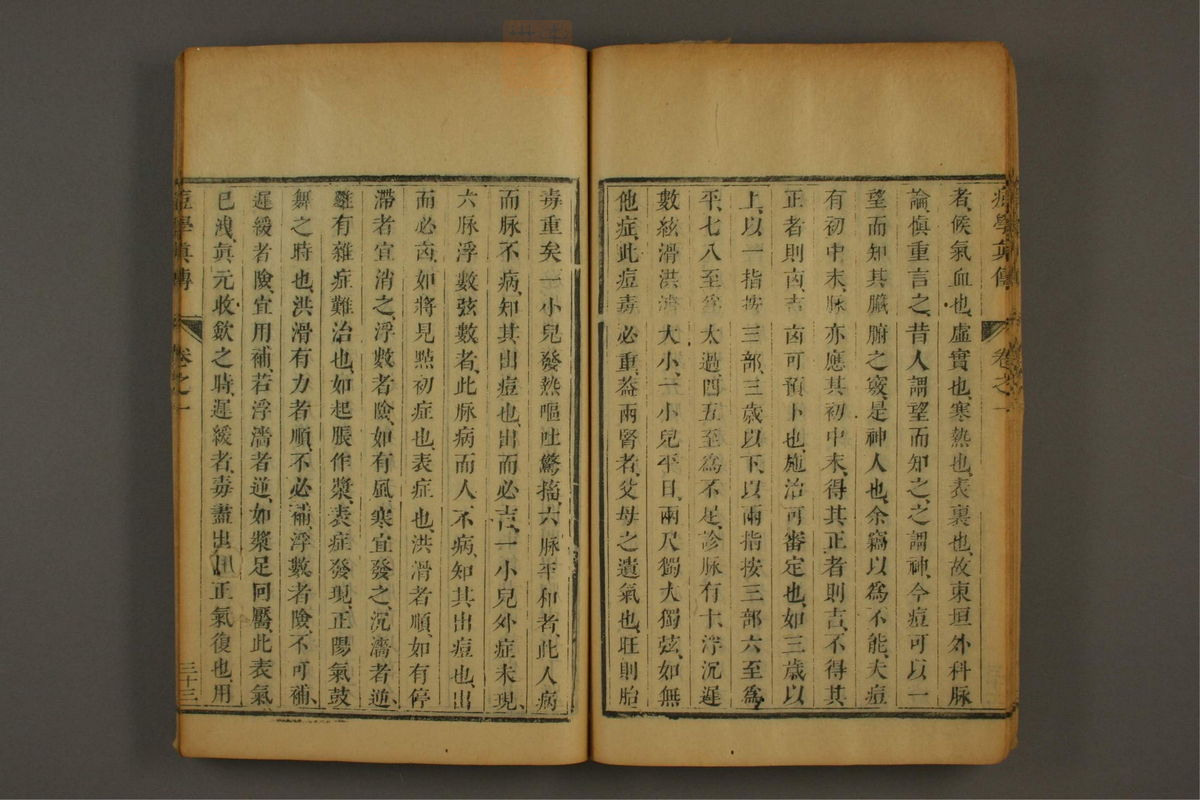 痘學眞傳 卷之一
者、候氣血也、虛實也、寒熱也、表裏也、故東垣外科脉
論、愼重言之、昔人謂望而知之、之謂神、今痘可以一
望而知其臟腑之竅、是神人也、余竊以爲不能、夫痘
有初中末、脉亦應其初中末、得其正者則吉、不得其
正者則㐫、吉㐫可預卜也、施治可審定也、如三歲以
上、以一指按三部、三歲以下、以兩指按三部、六至爲
平、七八至爲太過、四五至爲不足、診脉有十、浮沉遲
數絃滑洪濇大小、一小兒平日、兩尺獨大獨弦、如無
他症、此痘毒必重、葢兩腎者、父母之遺氣也、旺則胎
毒重矣、一小兒發熱嘔吐驚搐、六脉平和者、此人病
而脉不病、知其出痘也、出而必吉、一小兒外症未現、
六脉浮數弦數者、此脉病而人不病、知其出痘也、出
而必㐫、如將見點初症也、表症也、洪滑者順、如有停
滯者宜消之、浮數者險、如有風寒宜發之、沉濇者逆、
雖有雜症難治也、如起脹作漿、表症發現、正陽氣鼓
舞之時也、洪滑有力者順、不必補、浮數者險、不可補、
遲緩者險、宜用補、若浮濇者逆、如漿足囘靨、此表氣
已洩、眞元收歛之時、遲緩者、毒盡出、正氣復也、用
痘學眞傳 卷之一 三十三